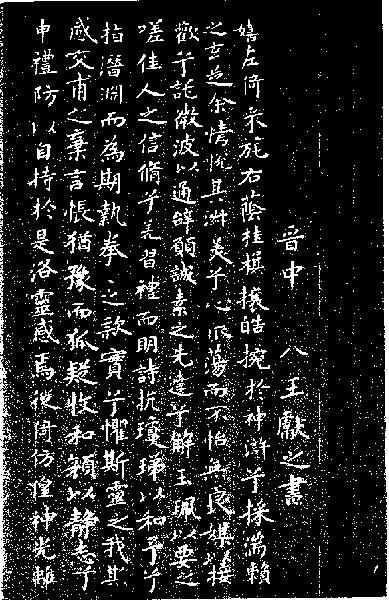 晉中 八王獻之書
嬉左倚采旄右蔭桂旗攘皓捥於神滸兮採湍瀨
之玄芝余情悅其淑美兮心振蕩而不怡無良媒以接
歡兮託微波以通辭願誠素之先達兮解玉珮以要之
嗟佳人之信脩兮羌習禮而明詩抗瓊珶以和予兮
指潛淵而為期執拳〻之款實兮懼斯靈之我欺
感交甫之棄言悵猶豫而狐疑收和顏以靜志兮
申禮防以自持於是洛靈感焉徙倚仿偟神光離